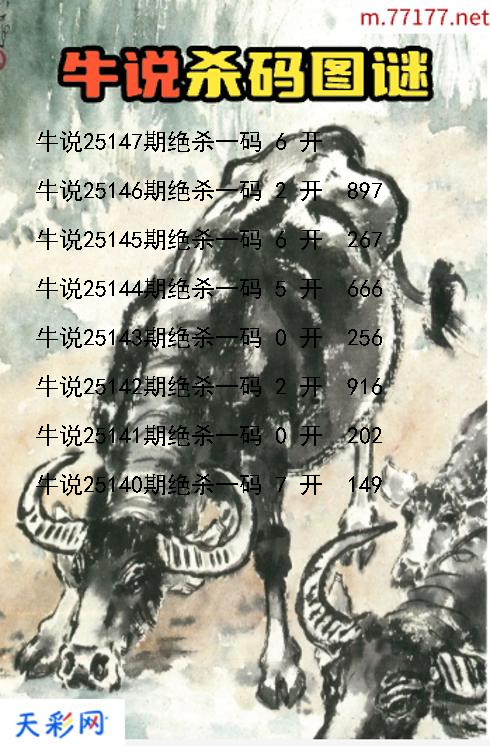 m.77177.net
牛说杀码图谜
牛说25147期绝杀一码 6 开
牛说25146期绝杀一码 2 开 897
牛说25145期绝杀一码 6 开 267
牛说25144期绝杀一码 5 开 666
牛说25143期绝杀一码 0 开 256
牛说25142期绝杀一码 2 开 916
牛说25141期绝杀一码 0 开 202
牛说25140期绝杀一码 7 开 149
天彩网